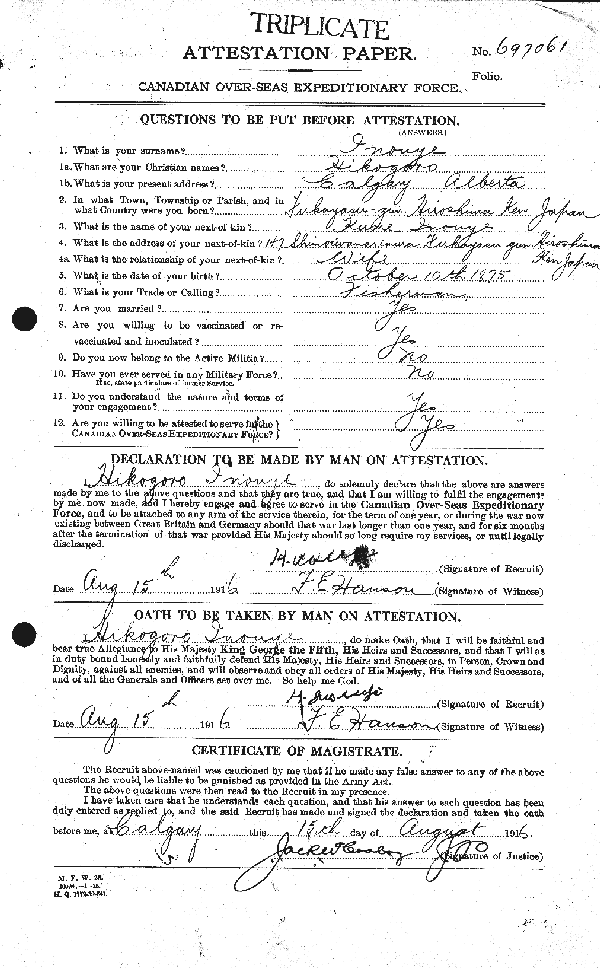 TRIPLICATE
ATTESTATION PAPER.
No. 697061
Folio.
CANADIAN OVER-SEAS EXPEDITIONARY FORCE.
QUESTIONS TO BE PUT BEFORE ATTESTATION.
(ANSWERS)
1. What is your surname? Inouye
1a. What are your Christian names? Hikogoro
1b. What is your present address? Calgary Alberta
2. In what Town, Township or Parish, and in
what Country were you born? Hiroshima Ken Japan
3. What is the name of your next-of-kin? Inouye
4. What is the address of your next-of-kin? 147 Hiroshima
4a. What is the relationship of your next-of-kin? Wife Ken Japan
5. What is the date of your birth? October 10th 1875
6. What is your Trade or Calling? Fisherman
7. Are you married? Yes
8. Are you willing to be vaccinated or re-
vaccinated and inoculated? Yes
9. Do you now belong to the Active Militia? No
10. Have you ever served in any Military Force? No
If so, state particulars of former Service.
11. Do you understand the nature and terms of
your engagement? Yes
12. Are you willing to be attested to serve in the Yes
CANADIAN OVER-SEAS EXPEDITIONARY FORCE?
DECLARATION TO BE MADE BY MAN ON ATTESTATION.
I, Hikogoro Inouye, do solemnly declare that the above are answers
made by me to the above questions and that they are true, and that I am willing to fulfil the engagements
by me now made, and I hereby engage and agree to serve in the Canadian Over-Seas Expeditionary
Force, and to be attached to any arm of the service therein, for the term of one year, or during the war now
existing between Great Britain and Germany should that war last longer than one year, and for six months
after the termination of that war provided His Majesty should so long require my services, or until legally
discharged.
(Signature of Recruit)
Date Aug 15th 1916 F E Hanson (Signature of Witness)
OATH TO BE TAKEN BY MAN ON ATTESTATION.
I, Hikogoro Inouye, do make Oath, that I will be faithful and
bear true Allegiance to His Majesty King George the Fifth, His Heirs and Successors, and that I will as
in duty bound honestly and faithfully defend His Majesty, His Heirs and Successors, in Person, Crown and
Dignity, against all enemies, and will observe and obey all orders of His Majesty, His Heirs and Successors,
and of all the Generals and Officers set over me. So help me God.
(Signature of Recruit)
Date Aug 15th 1916 F E Hanson (Signature of Witness)
CERTIFICATE OF MAGISTRATE.
The Recruit above-named was cautioned by me that if he made any false answer to any of the above
questions he would be liable to be punished as provided in the Army Act.
The above questions were then read to the Recruit in my presence.
I have taken care that he understands each question, and that his answer to each question has been
duly entered as replied to, and the said Recruit has made and signed the declaration and taken the oath
before me, at Calgary this 15th day of August 1916
(Signature of Justice)
M. F. W. 23.